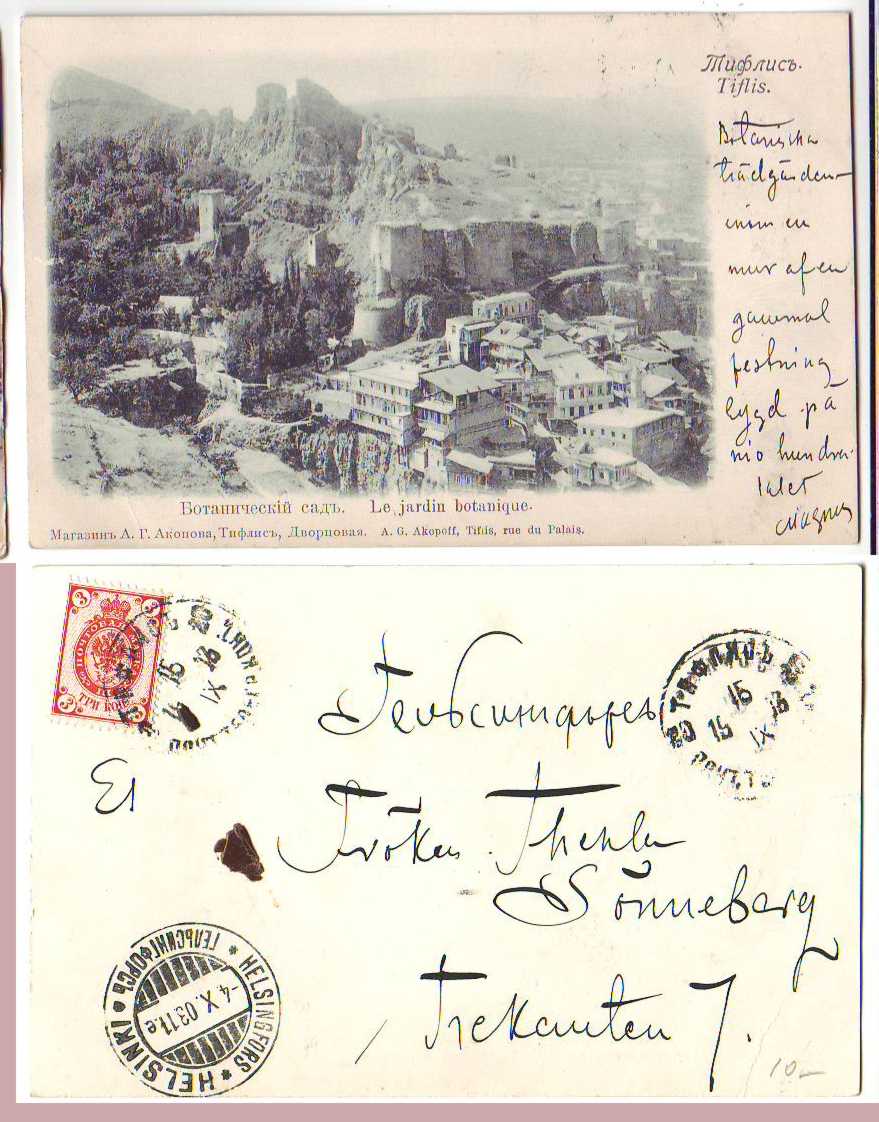 Тифлисъ.
Tiflis.
Botaniska
trädgården
inom en
mur af en
gammal
festning
bygd på
nio hundra-
talet
Magnus
Ботаническій садъ. Le jardin botanique.
Магазинъ А. Г. Акопова, Тифлисъ, Дворцовая. A. G. Akopoff, Tiflis, rue du Palais.
3 3
ПОЧТОВАЯ МАРКА
3 ТРИ КОП. 3
15
IX
ТИФЛИСЪ
15
15
IX
Гельсингфорсъ
Fröken Thekla
Sönneberg
Trekanten 7.
HELSINGFORS * HELSINKI * ГЕЛЬСИНГФОРСЪ *
-4.X.03.11.e
10-